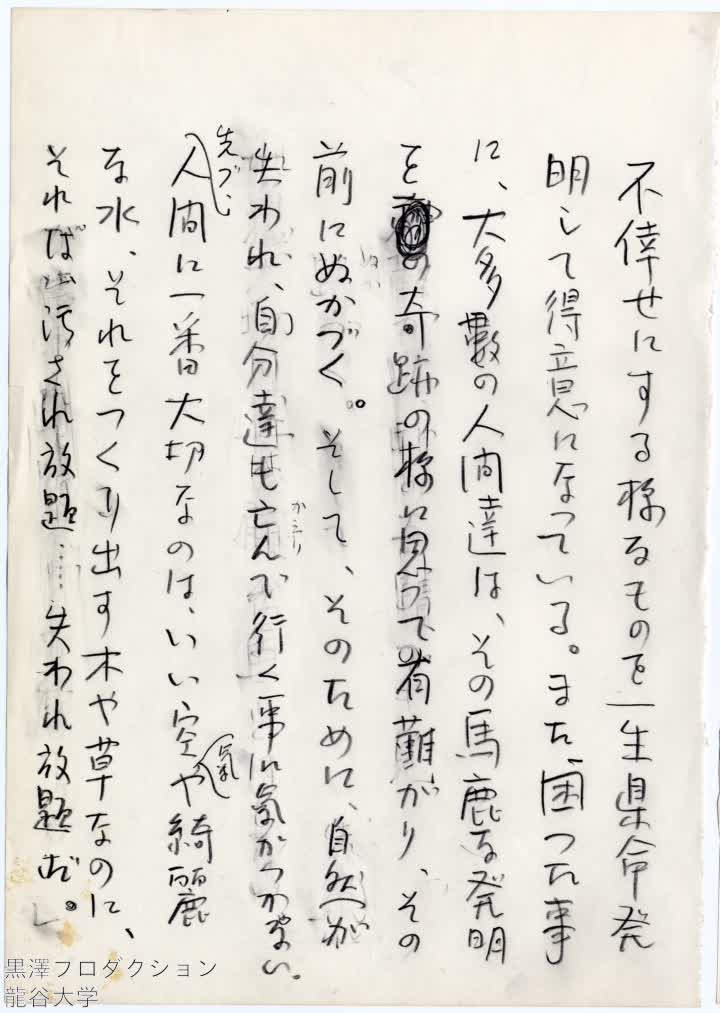 不倖せにする様なものを一生県命発
明して得意になっている。また、困った事
に、大多數の人間達は、その馬鹿な発明
をの奇跡の様に思って有難がり、その
前にぬかづく。そして、そのために、自然が
失われ、自分達も亡んで行く事に氣がつかない。
先づ、人間に一番大切なのは、いい空氣や綺麗
な水、それをつくり出す木や草なのに、
それは汚され放題……失われ放題だ。」
黒澤プロダクション
龍谷大学